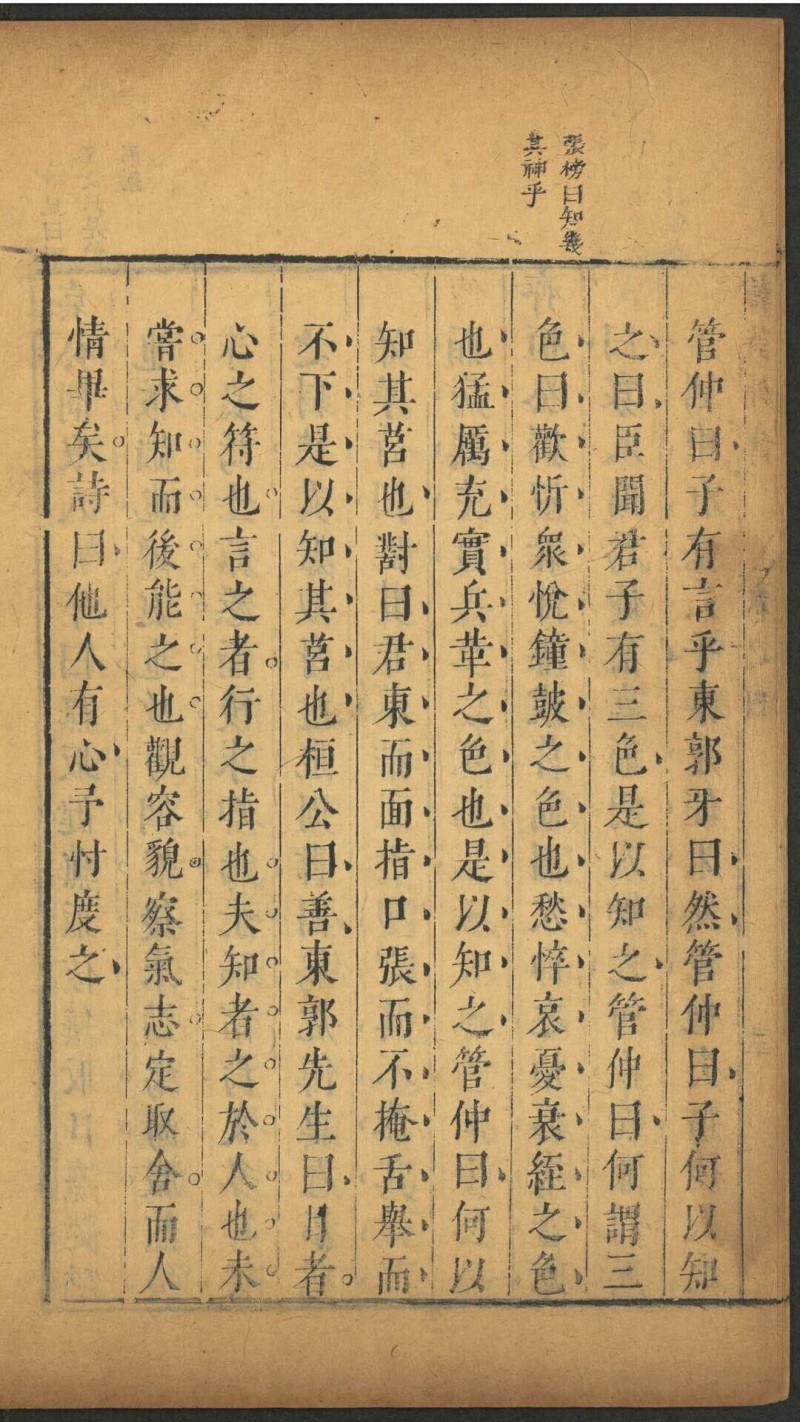 張榜曰知幾
其神乎
管仲曰子有言乎東郭牙曰然管仲曰子何以知
之曰臣聞君子有三色是以知之管仲曰何謂三
色曰歡忻衆悅鐘皷之色也愁悴哀憂衰絰之色
也猛厲充實兵革之色也是以知之管仲曰何以
知其莒也對曰君東而面指口張而不掩舌舉而
不下是以知其莒也桓公曰善東郭先生曰目者
心之符也言之者行之指也夫知者之於人也未
嘗求知而後能之也觀容貌察氣志定取舍而人
情畢矣詩曰他人有心予忖度之